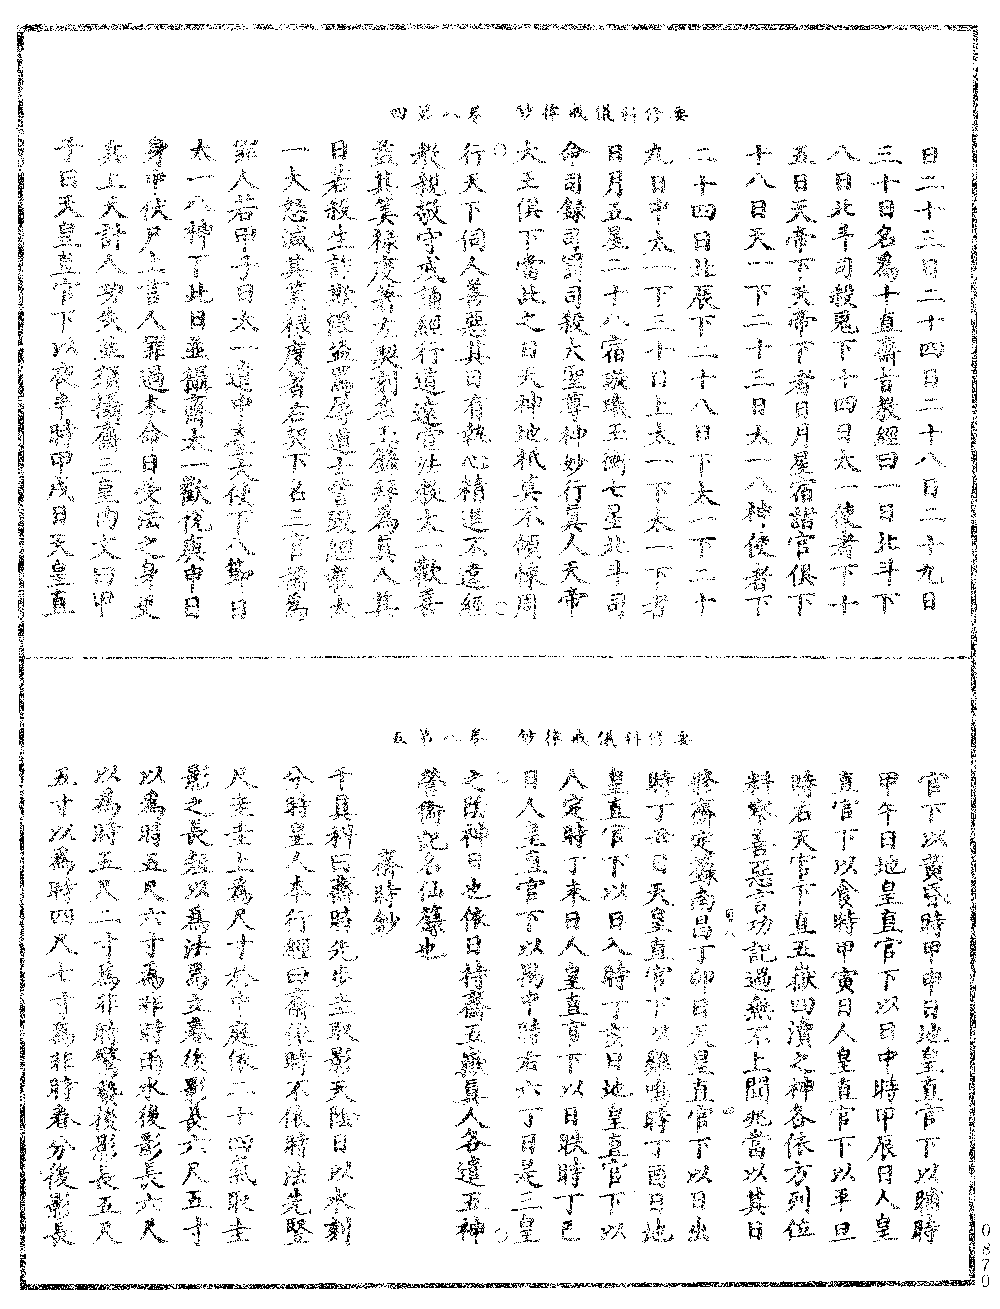 要修科儀戒律鈔　卷八第四
日二十三日二十四日二十八日二十九日
三十日名爲十直齋吉教經曰一日北斗下
八日北斗司殺鬼下十四日太一使者下十
五日天帝下天帝下者日月星宿諸官俱下
十八日天一下二十三日太一八神使者下
二十四日北辰下二十八日下太一下二十
九日中太一下三十日上太一下太一下者
日月五星二十八宿璇璣玉衡七星北斗司
命司錄司罰司殺大聖尊神妙行真人天帝
大王俱下當此之日天神地祇莫不傾悚周
行天下伺人善惡其日有執心精進不違經
教親敬守戒誦經行道遠營法教太一歡喜
益其筭祿度著左契刻名玉籍拜爲真人其
日若殺生詐欺婬盜罵辱道士訾毀經教太
一大怒減其筭祿度著右契下名三官謫爲
罪人若甲子日太一遣中臺大使下八節日
太一八神下此日並攝齋太一歡悅庚申日
身中伏尸上言人罪過本命日受法之身吏
兵上天計人功失並須攝齋三皇內文曰甲
子日天皇直官下以夜半時甲戌日天皇直
要修科儀戒律鈔　卷八第五
官下以黃昏時甲申日地皇直官下以晡時
甲午日地皇直官下以日中時甲辰日人皇
直官下以食時甲寅日人皇直官下以平旦
時右天官下直五嶽四瀆之神各依方列位
糾察善惡言功記過無不上聞兆當以其日
修齋定籙南昌丁卯日天皇直官下以日出
時丁丑日天皇直官下以雞鳴時丁酉日地
皇直官下以日入時丁亥日地皇直官下以
人定時丁未日人皇直官下以日昳時丁巳
日人皇直官下以禺中時右六丁日是三皇
之陰神日也依日持齋五嶽真人各遣五神
營衛記名仙籙也
齋時鈔
千真科曰齋時先步圭取影天陰日以水刻
分時皇人本行經曰齋依時不依時法先竪
尺圭圭上爲尺寸於中庭依二十四氣取圭
影之長短以爲法焉立春後影長六尺五寸
以爲時五尺六寸爲非時雨水後影長六尺
以爲時五尺二寸爲非時驚蟄後影長五尺
五寸以爲時四尺七寸爲非時春分後影長
0870